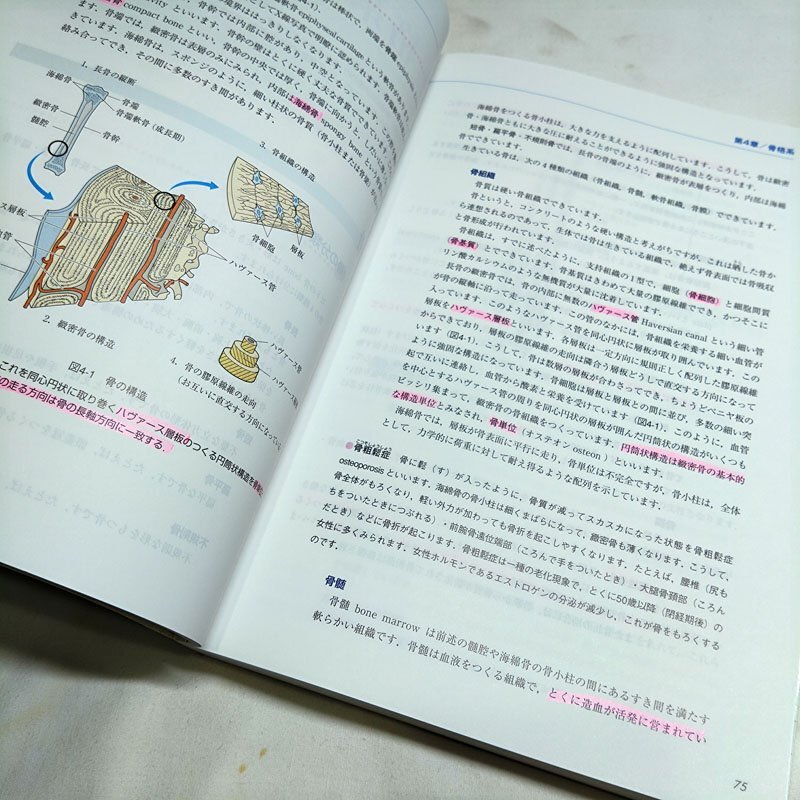 compact bone といいます．骨幹では内部に腔があり，中空となっています．この
きています．骨端では，緻密骨は表層のみにみられ，内部は海綿骨 spongy bone という
います．海綿骨は，スポンジのように，細い柱状の骨質（骨小柱または骨梁）が
絡み合ってでき，その間に多数のすき間があります．
1. 長骨の縦断
海綿骨
骨端
骨端軟骨（成長期）
緻密骨
髄腔
骨幹
3. 骨組織の構造
骨細胞
層板
ハヴァース管
2. 緻密骨の構造
ハヴァース管
4. 骨の膠原線維の走向
（お互いに直交する方向になっている
図4-1 骨の構造
これを同心円状に取り巻くハヴァース層板のつくる円筒状構造を
の走る方向は骨の長軸方向に一致する．
第4章／骨格系
海綿骨をつくる骨小柱は，大きな力を支えるように配列しています．こうして，骨は緻密
骨・海綿骨ともに大きな圧に耐えることができるように強固な構造となっています．
短骨・扁平骨・不規則骨では，長骨の骨端のように，緻密骨が表層をつくり，内部は海綿
骨でできています．
生きている骨は，次の4種類の組織（骨組織，骨髄，軟骨組織，骨膜）でできています．
骨組織
骨質は硬い骨組織でできています．
骨というと，コンクリートのような硬い構造と考えがちですが，これは晒した骨か
ら連想されるのであって，生体では骨は生きている組織で，絶えず骨表面では骨吸収
と骨形成が行われています．
骨組織は，すでに述べたように，支持組織の1型で，細胞（骨細胞）と細胞間質
（骨基質）とでできています．骨基質はきわめて大量の膠原線維ででき，かつそこに
リン酸カルシウムのような無機質が大量に沈着しています．
長骨の緻密骨では，骨の内部に無数のハヴァース管 Haversian canal という細い管
が骨の縦軸に沿って走っています．この管のなかには，骨組織を栄養する細い血管が
入っています．このようなハヴァース管を同心円状に層板が取り囲んでいます．この
層板をハヴァース層板といいます．各層板は一定方向に規則正しく配列した膠原線維
からできており，層板の膠原線維の走向は隣合う層板どうしで直交する方向になって
います（図4-1）．こうして，骨は数層の層板が合わさってでき，ちょうどベニヤ板の
ように強固な構造になっています．骨細胞は層板と層板との間に並び，多数の細い突
起で互いに連絡し，血管から酸素と栄養を受けています（図4-1）．このように，血管
を中心とするハヴァース管の周りを同心円状の層板が囲んだ円筒状の構造がいくつも
ビッシリ集まって，緻密骨の骨組織をつくっています．円筒状構造は緻密骨の基本的
な構造単位とみなされ，骨単位（オステオン osteon）といいます．
海綿骨では，層板が骨表面に平行に走り，骨単位は不完全ですが，骨小柱は，全体
として，力学的に荷重に対して耐え得るような配列を示しています．
●骨粗鬆症 骨に鬆（す）が入ったように，骨質が減ってスカスカになった状態を骨粗鬆症
osteoporosis といいます．海綿骨の骨小柱は細くまばらになって，緻密骨も薄くなります．こうして，
骨全体がもろくなり，軽い外力が加わっても骨折を起こしやすくなります．たとえば，腰椎（尻も
ちをついたときつぶれる）・前腕骨遠位端部（ころんで手をついたとき）・大腿骨頸部（ころん
だとき）などに骨折が起こります．骨粗鬆症は一種の老化現象で，とくに50歳以降（閉経期後）の
女性に多くみられます．女性ホルモンであるエストロゲンの分泌が減少し，これが骨をもろくする
のです．
骨髄
骨髄 bone marrow は前述の髄腔や海綿骨の骨小柱の間にあるすき間を満たす
軟らかい組織です．骨髄は血液をつくる組織で，とくに造血が活発に営まれてい
75